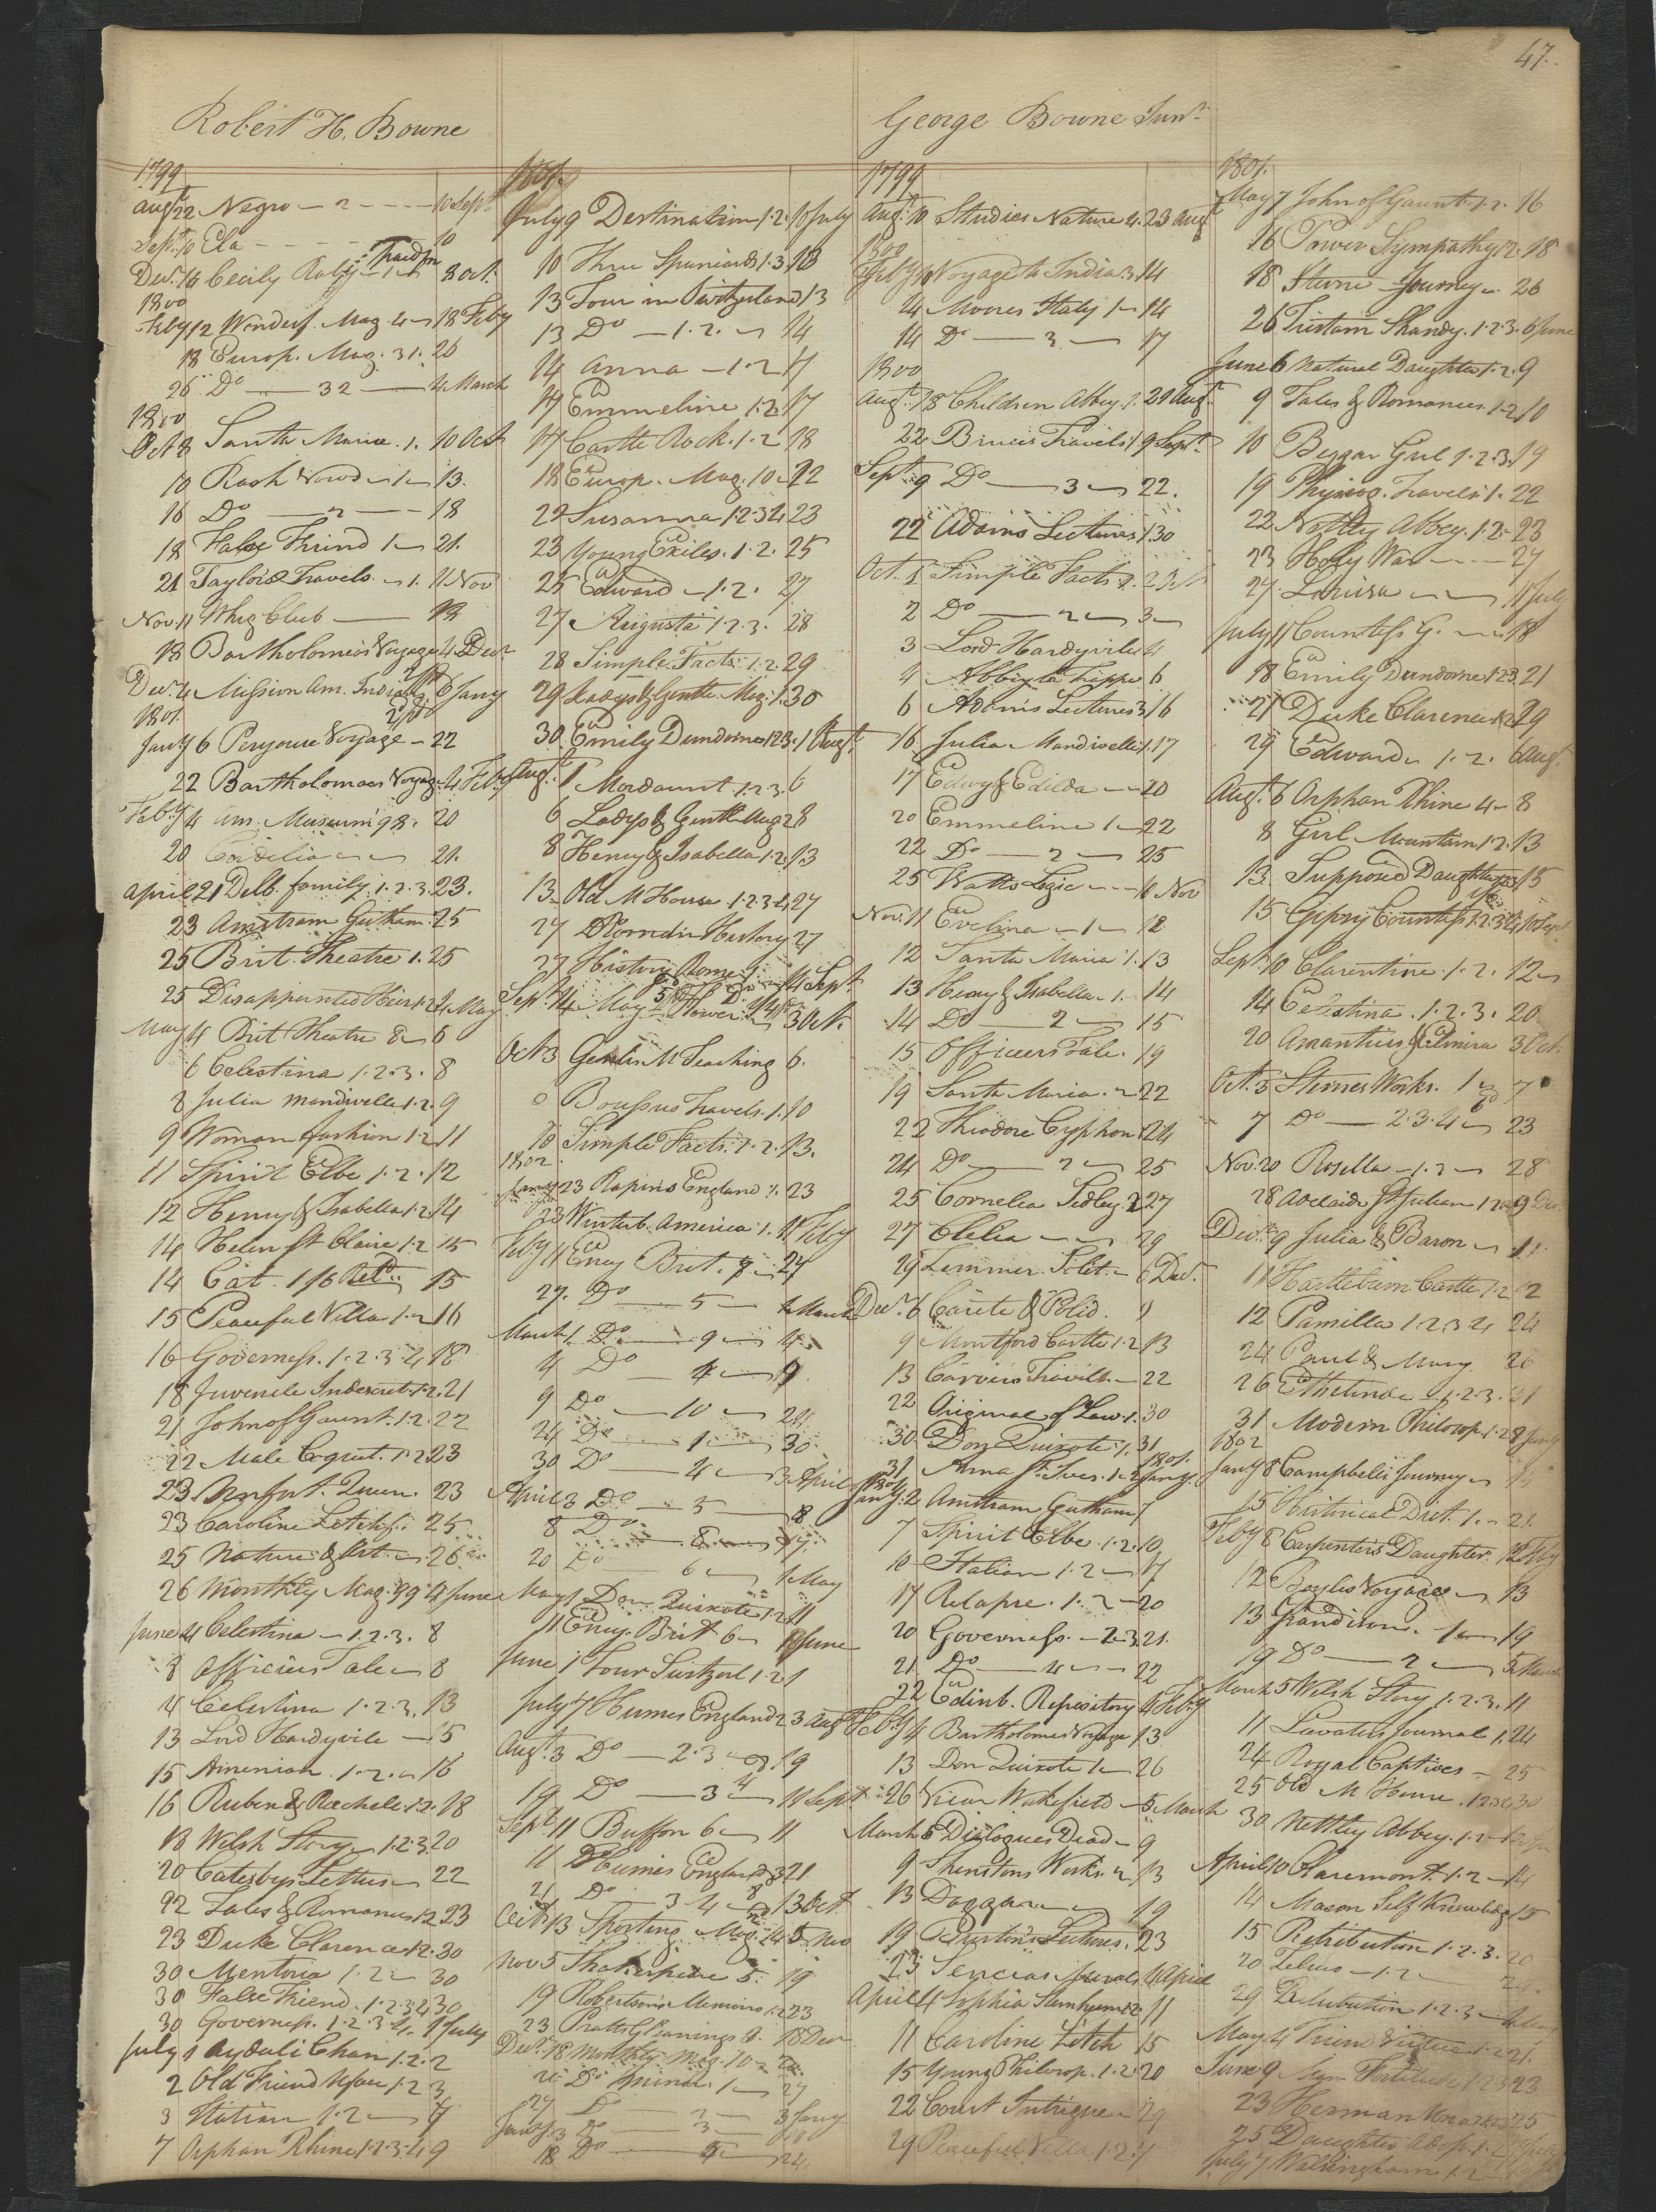 47.
Robert H. Bowne
1799
Augt 22 Negro — 2 - - - - 10 Sept
Sept. 10 Ela - - - - 10
Decr. 14 Cecily Raby 8 Oct.
1800
Feby 12 Wonderf. Mag. 4 18 Feby
18 Europ. Mag. 31. 26
26 Do — 32 — 4 March
1800
Oct 8 Santa Maria . 1. 10 Oct
10 Rash Vows — 1 — 13.
16 Do — 2 — 18
18 False Friend 1 — 21.
21 Taylor's Travels — 1. 11 Nov
Nov. 11 Whig Club — 18
18 Bartholomeo's Voyage 4 Decr
Decr. 4 Mission Am. Indians 6 Jany
1801.
Jany 6 Perouse Voyage — 22
22 Bartholomeos Voyage 4 Feby
Feby 4 Am. Museum 98. 20
20 Cordelia — 21.
April 21 Delb. family. 1.2.3. 23.
23 Armstram Gutham 25
25 Brit. Theatre 1. 25
25 Disappointed Heir 1.2. 4 May
May 4 Brit Theatre 8 — 6
6 Celestina 1.2.3. 8
8 Julia Mandiville 1.2. 9
9 Woman fashion 1.2 11
11 Spirit Elbe 1.2. 12
12 Henry & Isabella 1.2 14
14 Helen St Claire 1.2 15
14 Cat. 1/6 15
15 Peaceful Villa 1.2 16
16 Governess. 1.2.3.4 18
18 Juvenile Indescret. 1.2. 21
21 John of Gaunt. 1.2. 22
22 Male Coquet. 1.2 23
23 Unfort. Queen. 23
23 Caroline Letchf. 25
25 Nature & Art — 26
26 Monthly Mag. 99 4 June
June 4 Celestina — 1.2.3. 8
8 Officers Tale — 8
4 Celestina 1.2.3. 13
13 Lord Hardyvile — 15
15 Armenian . 1.2. 16
16 Ruben & Rachel. 1.2. 18
18 Welsh Story 1.2.3. 20
20 Catesbys Letters 22
22 Tales & Romances 1.2 23
23 Duke Clarence 1.2. 30
30 Mentoria 1.2 — 30
30 False Friend. 1.2.3.4 30
30 Governess. 1.2.3.4. 1 July
July 1 Aydali Chan 1.2. 2
2 Old Friend 1.2 3
3 Italian 1.2 — 7
7 Orphan Rhine 1.2.3.4 9
1801
July 9 Destination 1.2. 10 July
10 Three Spaniards 1.3 13
13 Tour in Switzerland 13
13 Do — 1.2. — 14
14 Anna — 1.2 17
17 Emmeline 1.2. 17
17 Castle Rock. 1.2 18
18 Europ. Mag. 10 22
22 Susanna 1.2.3.4 23
23 Young Exiles. 1.2. 25
25 Edward — 1.2. 27
27 Augusta 1.2.3. 28
28 Simple Facts 1.2. 29
29 Ladys & Gentle. Mag. 1. 30
30 Emily Dundorne 1.2.3. 1 Augt.
Augt. 1 Mordaunt 1.2.3. 6
6 Ladys & Gentle Mag 2 8
8 Henry & Isabella 1.2. 13
13 Old M House . 1.2.3.4. 27
27 Roman History 27
27 History Rome 1. 14 Sept
Sept. 14 May Flower 3 Oct.
Oct 3 Genlis M Teaching 6.
Boussus Travels. 1. 10
10 Simple Facts. 1.2. 13.
1802.
Jany 23 Rapins England 1. 23
23 Winterb. America 1. 11 Feby
Feby 11 Ency Brit. 7 — 27
27. Do — 5 — 1 March
March 1. Do — 9 — 4
4 Do — 4 — 9
9 Do — 10 — 24
24 Do — 1 — 30
30 Do — 4 — 3 April
April 3 Do — 5 — 8
8 Do — 8 — 17
20 Do — 6 — 1 May
May 1 Don Quixote 1.2. 11
11 Ency. Brit 6 — 1 June
June 1 Tour Switzerl 1.2 1
July 7 Humes England 2 3 Augt
Augt. 3 Do — 2.3 19
19 Do — 3 4 — 11 Sept
Sept. 11 Buffon 6 — 11
11 Humes England 3 21
21 Do — 3 4 — 13 Oct.
Oct 13 Sporting Mag. 14 5 Nov
Nov 5 Shakespeare 5. 19
19 Robertsons Memoirs 1.2 23
23 Pratts Gleanings 3. 18 Decr
Decr. 18 Monthly Mag. 10
Do — 1 — 27
27 Do — 2 — 3 Jany
Jany 3 Do — 3 — 10
18 Do — 24.
George Bowne Junr
1799
Augt. 10 Studies Nature 4. 23 Augt
1800
Feby 10 Voyage to India 3. 14
14 Moores Italy 1 — 14
14 Do — 3. — 17
1800
Augt. 18 Children Abbey. 1. 20 Augt.
22 Bruces Travels 1. 9 Sept.
Sept. 9 Do — 3 — 22.
22 Adams Lectures 1 30
Oct. 1 Simple Facts 2. 2 Oct
2 Do — 2 — 3 —
3 Lord Hardyvile 4
4 Abbey la Trippe 6
6 Adams Lectures 3 16
16 Julia Mandiville 1. 17
17 Edwy & Edilda — 20
20 Emmeline 1 — 22
22 Do — 2 — 25
25 Watts Logic — 10 Nov
Nov. 11 Evelina — 1 — 12
12 Santa Maria 1. 13
13 Henry & Isabella 1. 14
14 Do — 2 — 15
15 Officers Tale. 19
19 Santa Maria. 2 22
22 Theodore Cyphon 24
24 Do — 2 — 25
25 Cornelia Sedley. 2 27
27 Clelia — 29
29 Zimmer. Solit. — 6 Decr.
Decr. 6 Carite & Polid. 9
9 Muntford Castle 1.2 13
13 Carvers Travels — 22
22 Original of Law. 1. 30
30. Don Quixote. 1. 31
31 Anna St. Ives. 1.2 1801. Jany.
Jany. 2 Armstram Gutham 7
7 Spirit Elbe. 1.2. 10
10 Italian 1.2 — 17
17 Relapse. 1.2 — 20
20 Governess. — 2.3. 21.
21 Do — 4 — 22
22 Edinb. Repository 4 Feby
Feby 4 Bartholomeo Voyage 13
13 Don Quixote 1 — 26
26 Vicar Wakefield — 5 March
March 5 Dialogues Dead — 9
9 Shenstons Works. 2 13
13 19
19 Priestons Lectures. 23
23 Senecas Morals 4 April
April 4 Sophia Sternheim 1.2. 11
11 Caroline Litch 15
15 Young Philosop. 1.2. 20
22 Court Intrigue — 29
29 Peaceful Villa 1.2.
1801.
May 7 John of Gaunt. 1.2. 16
16 Power Sympathy 1.2. 18
18 Sterne Journey — 26
26 Tristam Shandy. 1.2.3. 6 June
June 6 Natural Daughter 1.2. 9
9 Tales & Romances 1.2 10
10 Beggar Girl 1.2.3. 19
19 Physiog. Travels 1. 22
22 Nettley Abbey. 1.2. 23
23 Holy War - - - 27
27 Louisa — 11 July
July 11 Countess G. — 18
18 Emily Dundorne 1.2.3. 21
21 Duke Clarence 1.2 29
29 Edward 1.2. 6 Augt.
Augt. 6 Orphan Rhine 4 — 8
8 Girl Mountain 1.2. 13
13 Supposed Daughter 15
15 Gipsy Countess 1.2.3.4 10 Sept
Sept. 10 Clarentine. 1.2. 12
14 Celestina . 1.2.3. 20
20 Amanthis & Elmira 3 Oct.
Oct. 3 Sternes Works. 1 7
7 Do — 2.3.4 23
Nov. 20 Rosella — 1.2 — 28
28 Adelaide St Julian 1.2 9 Decr
Decr. 9 Julia & Baron — 11
11 Hartlebourn Castle 1.2 12
12 Pamilla 1.2.3.4 24
24 Paul & Mary 26
26 Ethelinde 1.2.3. 31
31 Modern Philosop. 1.2 8 Jany
1802
Jany 8 Campbells Journey — 15
15 Historical Dict. 1. — 21.
Feby 8 Carpenters Daughter. 12 Feby
12 Bayles Voyages — 13
13 Grandison. 1 — 19
19 Do — 2 — 5 March
March 5 Welsh Story 1.2.3. 11
11 Lavaters Journal 1. 24
24 Royal Captives — 25
25 Old M House . 1.2.3.4 30
30 Nettley Abbey. 1.2
April 10 Claremont. 1.2 — 14
14 Mason Self Knowledge 15
15 Retribution 1.2.3. 20
20 Zeluco — 1.2 — 29.
29 Retribution 1.2.3 — 4 May
May 4 Friend Virtue 1.2 21.
June 9 Fortitude 1.2.3 23
23 Herman Una 25
25 Daughter Adop. 1.2
July 7 Walsingham 1.2